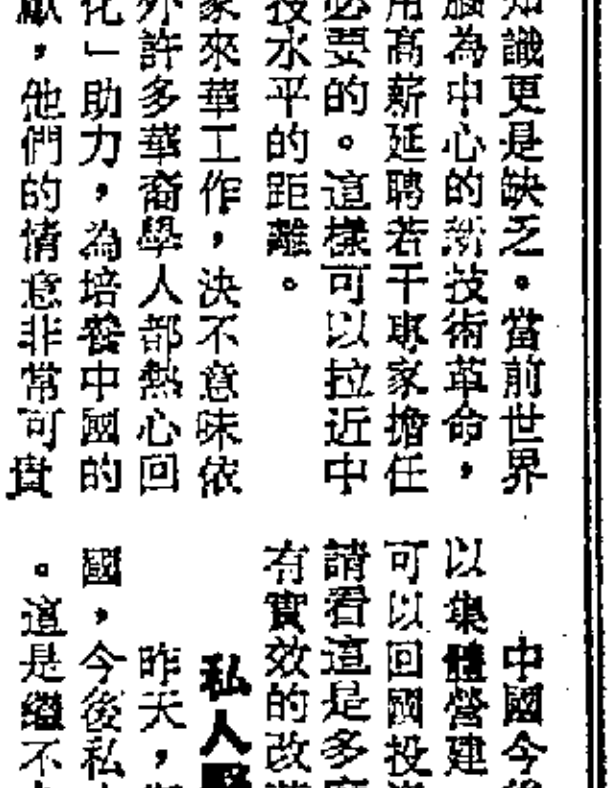 知識更是缺乏。當前世界
腦為中心的新技術革命,
用高薪延聘若干專家擔任
必要的。這樣可以拉近中
技水平的距離。
家來華工作,決不意味依
外許多華裔學人都熱心回
化」助力,為培養中國的
獻,他們的情意非常可貴
中國今後
以集體營建
可以回國投資
請看這是多麼
有實效的改
私人
昨天,
國,今後私
。這是繼不